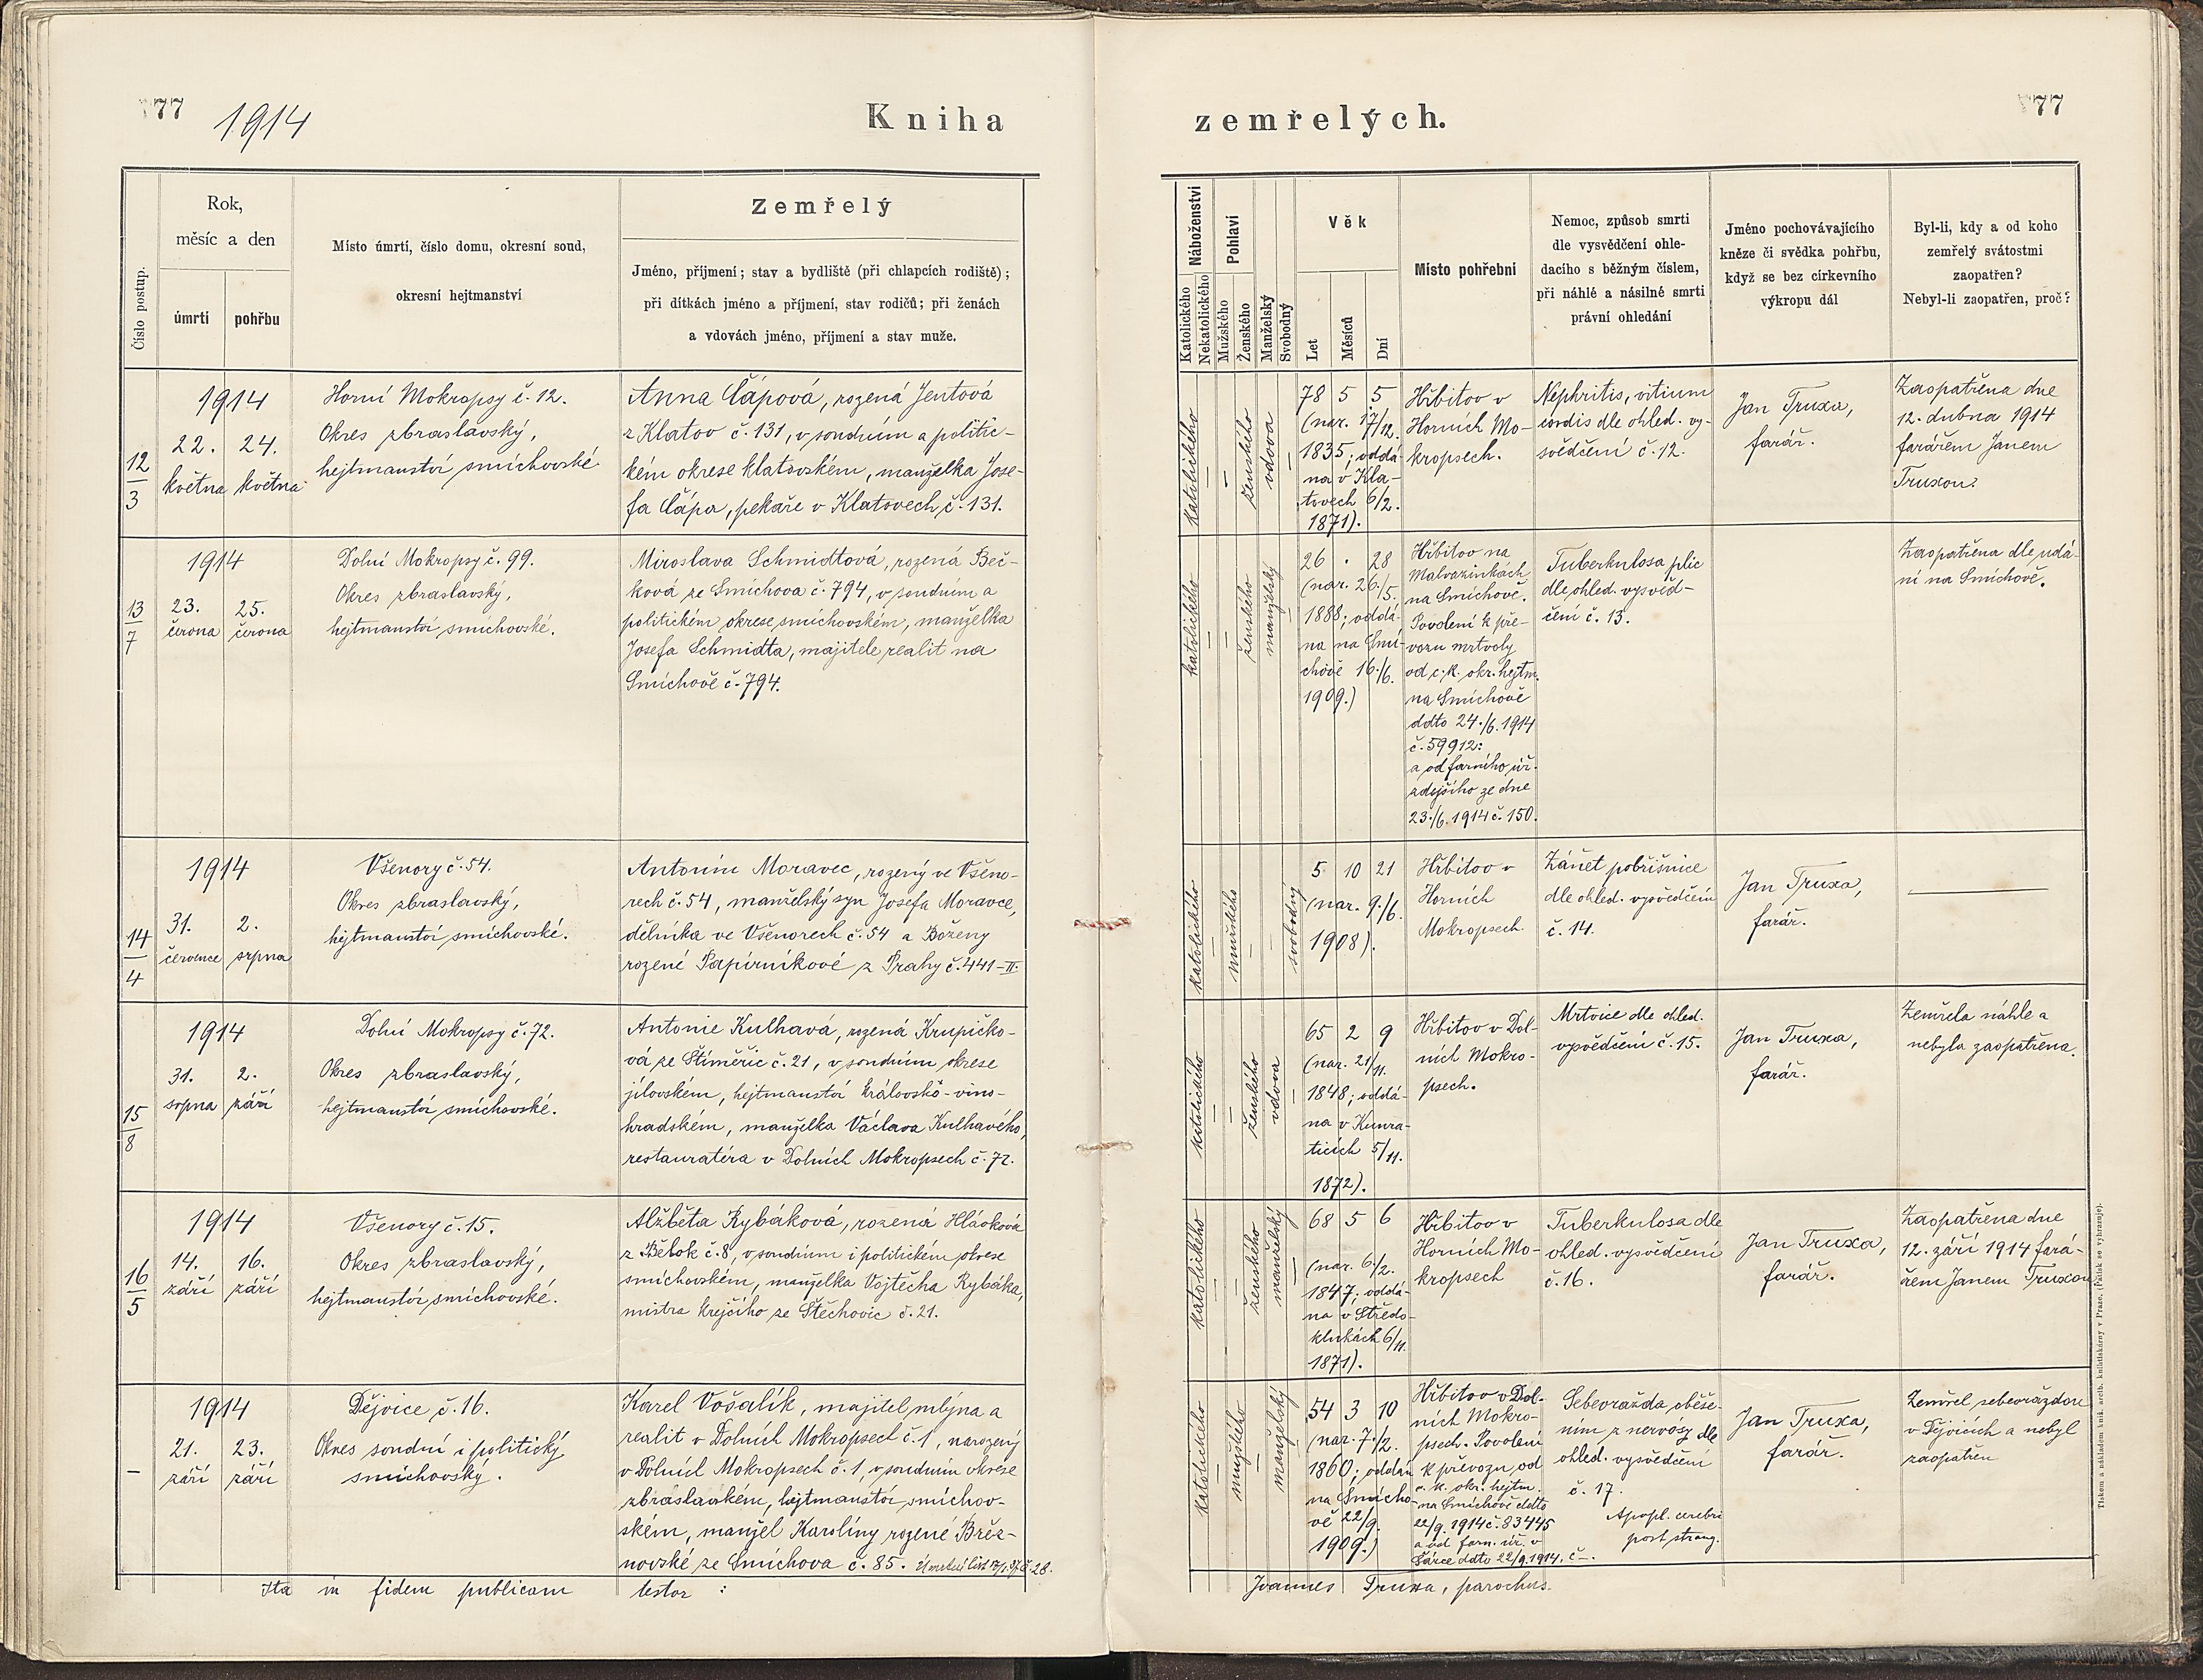 77
1914
Kniha
zemřelých.
77
Číslo postup.
Rok,
měsíc a den
úmrtí
pohřbu
Místo úmrtí, číslo domu, okresní soud,
okresní hejtmanství
Zemřelý
Jméno, příjmení; stav a bydliště (při chlapcích rodiště);
při dítkách jméno a příjmení, stav rodičů; při ženách
a vdovách jméno, příjmení a stav muže.
Náboženství
Katolického
Nekatolického
Pohlaví
Mužského
Ženského
Manželský
Svobodný
Věk
Let
Měsíců
Dní
Místo pohřební
Nemoc, způsob smrti
dle vysvědčení ohle-
dacího s běžným číslem,
při náhlé a násilné smrti
právní ohledání
Jméno pochovávajícího
kněze či svědka pohřbu,
když se bez církevního
výkropu dál
Byl-li, kdy a od koho
zemřelý svátostmi
zaopatřen?
Nebyl-li zaopatřen, proč?
12
3
1914
22. 24.
května května
Horní Mokropsy č. 12.
Okres zbraslavský,
hejtmanství smíchovské.
Anna Čápová, rozená Jentová
z Klatov č. 131, v soudním a politic-
kém okrese klatovském, manželka Jose-
fa Čápa, pekaře v Klatovech č. 131.
katolického
ženského
vdova
78 5 5
(nar. 17/12.
1835; oddá-
na v Kla-
tovech 6/2.
1871).
Hřbitov v
Horních Mo-
kropsech.
Nephritis, vitium
cordis dle ohled. vy-
svědčení č. 12.
Jan Truxa,
farář.
Zaopatřena dne
12. dubna 1914
farářem Janem
Truxou.
13
7
1914
23. 25.
června června
Dolní Mokropsy č. 99.
Okres zbraslavský,
hejtmanství smíchovské.
Miroslava Schmidtová, rozená Beč-
ková ze Smíchova č. 794, v soudním a
politickém okrese smíchovském, manželka
Josefa Schmidta, majitele realit na
Smíchově č. 794.
katolického
ženského
manželský
26 . 28
(nar. 26./5.
1888; oddá-
na na Smí-
chově 16./6.
1909.)
Hřbitov na
Malvazinkách
na Smíchově.
Povolení k pře-
vozu mrtvoly
od c. k. okr. hejtm.
na Smíchově
ddto 24./6. 1914
č. 59912:
a od farního úř.
zdejšího ze dne
23./6. 1914 č. 150.
Tuberkulosa plic
dle ohled. vysvěd-
čení č. 13.
Zaopatřena dle udá-
ní na Smíchově.
14
4
1914
31. 2.
července srpna
Všenory č. 54.
Okres zbraslavský,
hejtmanství smíchovské.
Antonín Moravec, rozený ve Všeno-
rech č. 54, manželský syn Josefa Moravce,
dělníka ve Všenorech č. 54 a Boženy
rozené Papírníkové z Prahy č. 441-II.
katolického
mužského
svobodný
5 10 21
(nar. 9./6.
1908).
Hřbitov v
Horních
Mokropsech.
Zánět pobřišnice
dle ohled. vysvědčení
č. 14.
Jan Truxa,
farář.
15
8
1914
31. 2.
srpna září
Dolní Mokropsy č. 72.
Okres zbraslavský,
hejtmanství smíchovské.
Antonie Kulhavá, rozená Krupičko-
vá ze Štiměřic č. 21, v soudním okrese
jílovském, hejtmanství královsko-vino-
hradském, manželka Václava Kulhavého,
restauratéra v Dolních Mokropsech č. 72.
katolického
ženského
vdova
65 2 9
(nar. 21/11.
1848; oddá-
na v Kunra-
ticích 5/11.
1872).
Hřbitov v Dol-
ních Mokro-
psech.
Mrtvice dle ohled.
vysvědčení č. 15.
Jan Truxa,
farář.
Zemřela náhle a
nebyla zaopatřena.
16
5
1914
14. 16.
září září
Všenory č. 15.
Okres zbraslavský,
hejtmanství smíchovské.
Alžběta Rybáková, rozená Hlávková
z Bělok č. 8, v soudním i politickém okrese
smíchovském, manželka Vojtěcha Rybáka,
mistra krejčího ze Štěchovic č. 21.
katolického
ženského
manželský
68 5 6
(nar. 6/2.
1847; oddá-
na v Středo-
klukách 6/11.
1871).
Hřbitov v
Horních Mo-
kropsech
Tuberkulosa dle
ohled. vysvědčení
č. 16.
Jan Truxa,
farář.
Zaopatřena dne
12. září 1914 fará-
řem Janem Truxou
1914
21. 23.
září září
Dějvice č. 16.
Okres soudní i politický
smíchovský.
Karel Vošalík, majitel mlýna a
realit v Dolních Mokropsech č. 1, narozený
v Dolních Mokropsech č. 1, v soudním okrese
zbraslavkém, hejtmanství smíchov-
ském, manžel Karolíny rozené Břez-
novské ze Smíchova č. 85.
katolického
mužského
manželský
54 3 10
(nar. 7./2.
1860; oddán
na Smícho-
vě 22/9.
1909.)
Hřbitov v Dol-
ních Mokro-
psech. Povolení
k převozu od
c. k. okr. hejtm.
na Smíchově ddto
22/9. 1914 č. 83445
a od farn. úř. v
Šárce ddto 22/9. 1914. č –.
Sebevražda oběše-
ním z nervósy dle
ohled. vysvědčení
č. 17.
Apopl. cerebri
post strang.
Jan Truxa,
farář.
Zemřel sebevraždou
v Dejvicích a nebyl
zaopatřen
Ita in fidem publicam testor :
Joannes Truxa, parochus.
Tiskem a nákladem kníž. arcib. knihtiskárny v Praze. (Patisk se vyhrazuje).